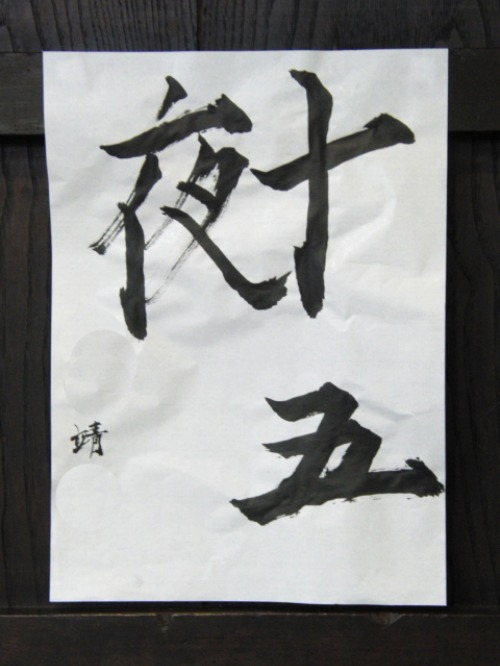 十五
夜
靖